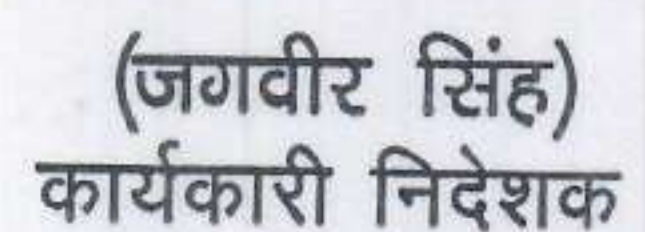 (जगवीर सिंह)
कार्यकारी निदेशक